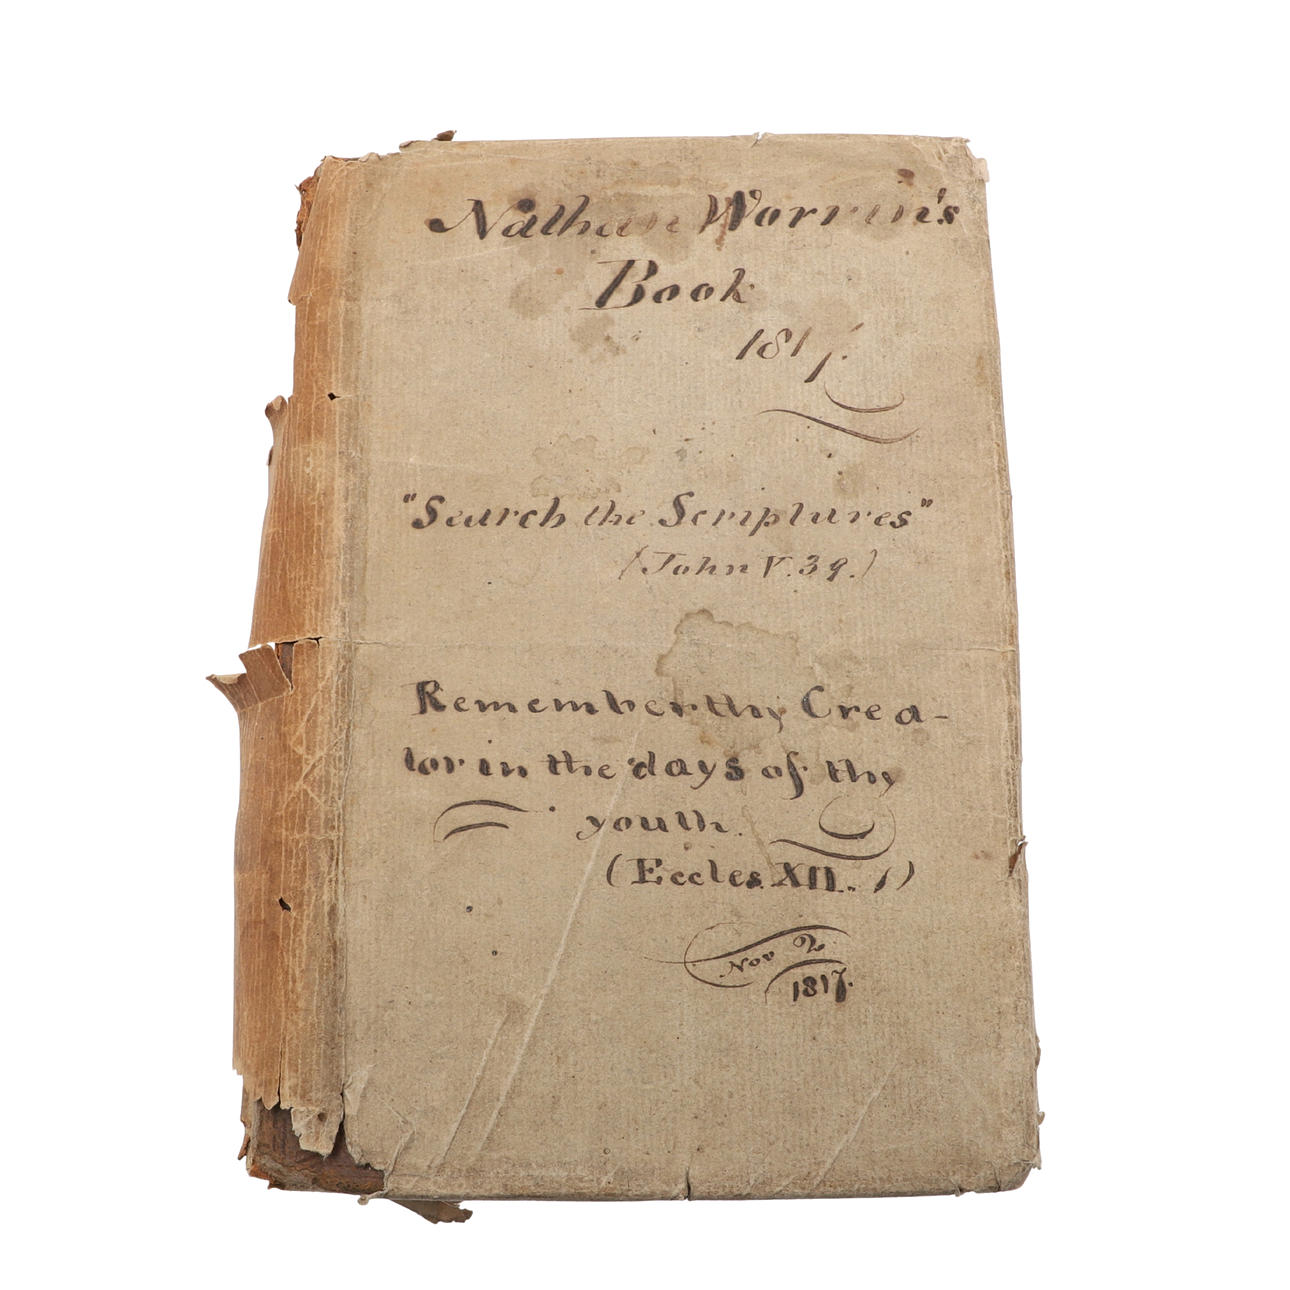 Nathan Worrin's
Book
1817.
"Search the Scriptures"
(John V. 39.)
Remember thy Crea-
tor in the days of thy
youth.
(Eccles. XII. 1)
Nov 2
1817.